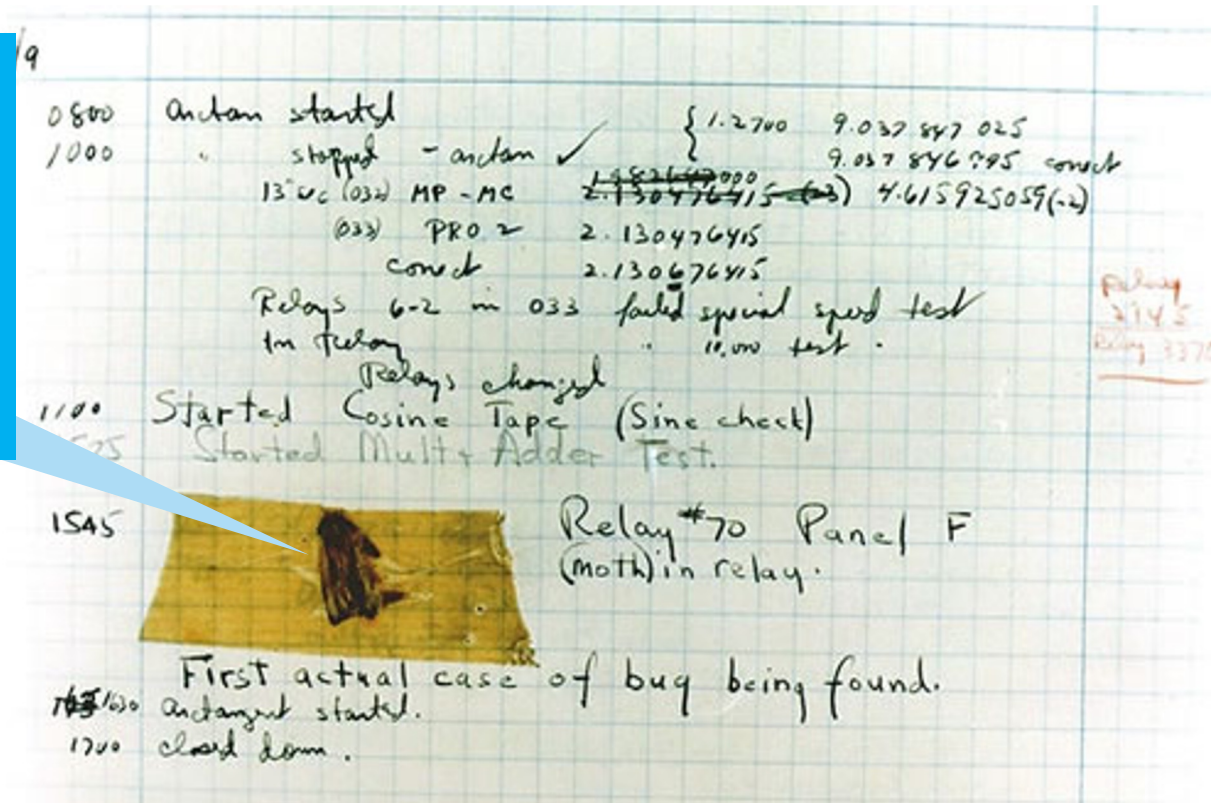 /9
0800 arctan started { 1.2700 9.037 847 025
1000 " stopped - arctan ✓ 9.037 846 795 correct
13"uc (032) MP - MC 2.130476415 (-3) 4.615925059(-2)
(033) PRO 2 2.130476415
correct 2.130676415
Relays 6-2 in 033 failed special speed test
In Relay " 10,000 test .
Relay
2145
Relay 3370
Relays changed
1100 Started Cosine Tape (Sine check)
1525 Started Mult + Adder Test.
1545 Relay #70 Panel F
(moth) in relay.
First actual case of bug being found.
1630 arctangent started.
1700 closed down.